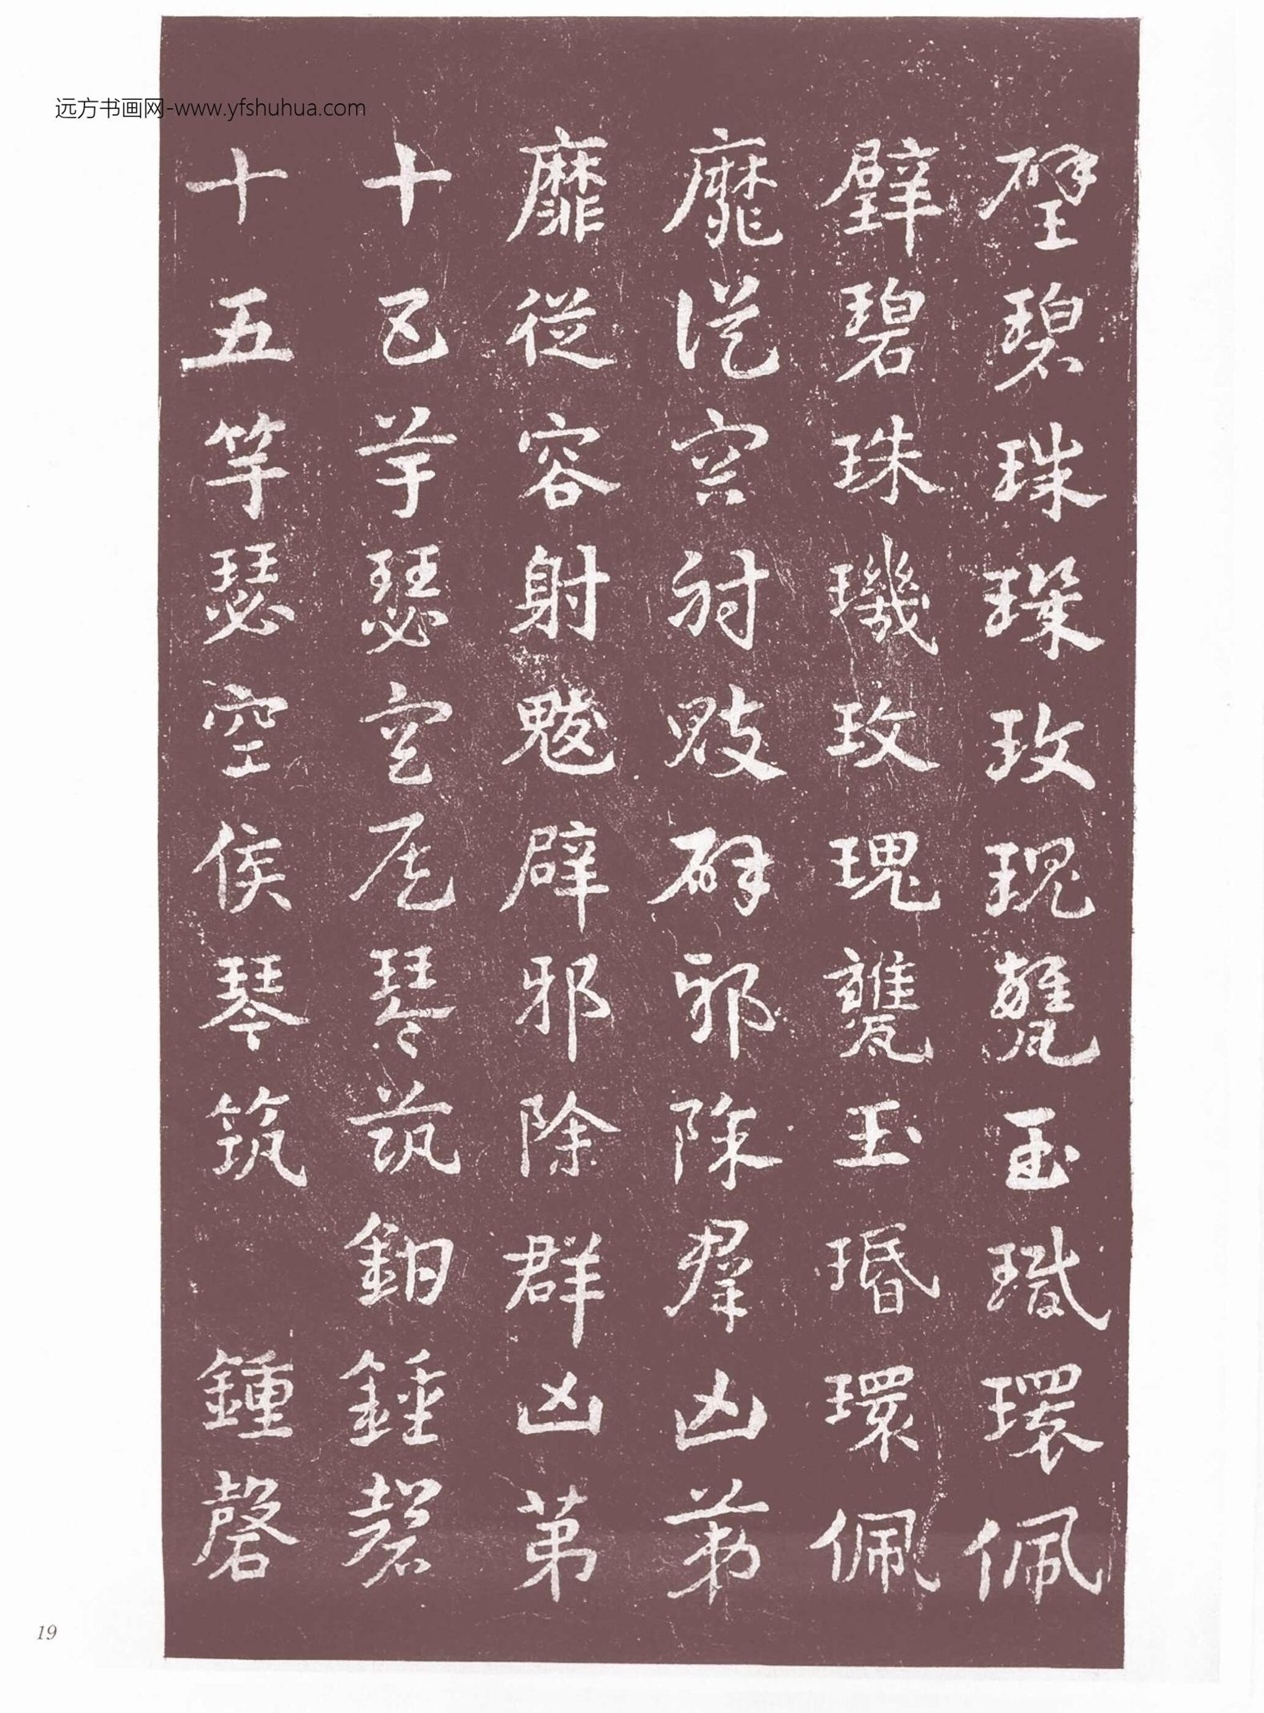 远方书画网-www.yfshuhua.com
璧碧珠璣玫瑰甕玉環佩
璧碧珠璣玫瑰甕玉瑉環佩
靡從容射鬾辟邪除群凶第
靡從容射鬾辟邪除群凶第
十五竽瑟空侯琴筑鍾磬
十五竽瑟空侯琴筑鍾磬
19